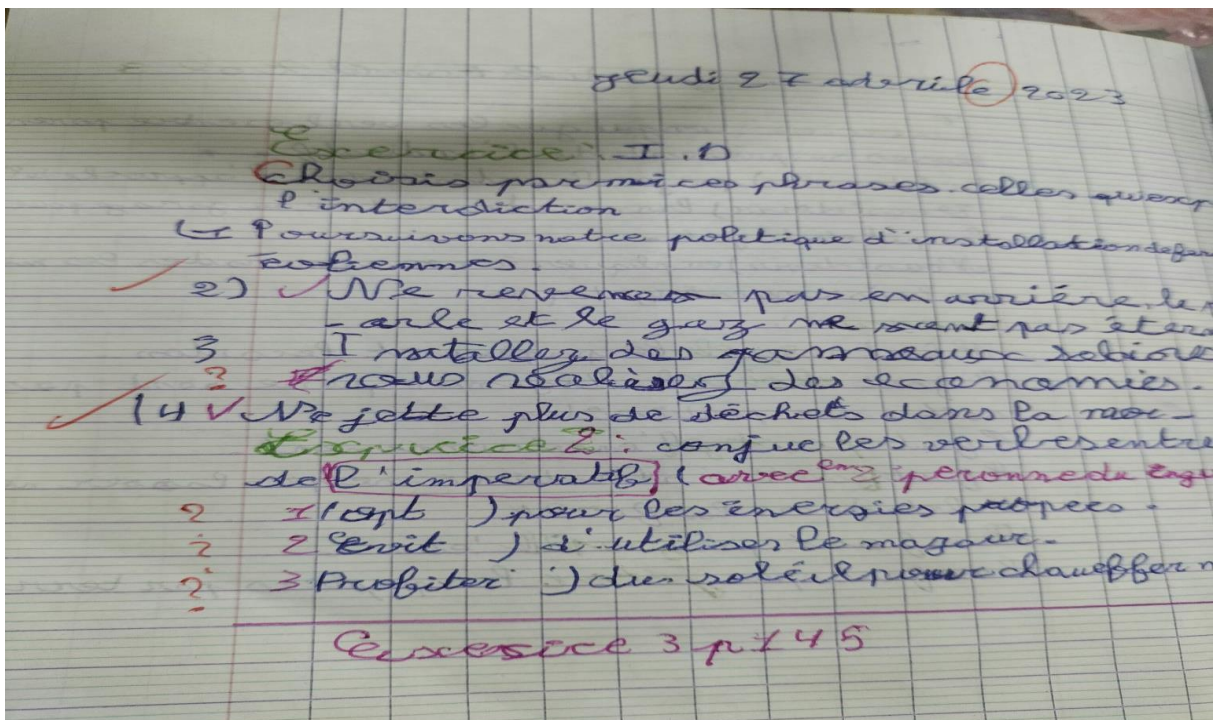 jeudi 27 adarile 2023
Exercice I.D
Choisis parmi ces phrases celles quiexp
l'interdiction
1- Poursuivons notre poletique d'instollation defer
eoliennes.
2) Ne revenez pas en arriére. le
-arle et le gaz ne sont pas éter
3 Installez des panneaux solaire
? nous réalisez des economies.
(4 Ne jette plus de déchets dans la mer-
Exercice 2: conjue les verbesentre
de l'imperatif (avec 2 peronnedu
? 1(opt ) pour les énergies propees.
? 2 (evit ) d'utiliser le mazout.
? 3 Profiter ) du soléil pour chauffer n
Exercice 3 p 145